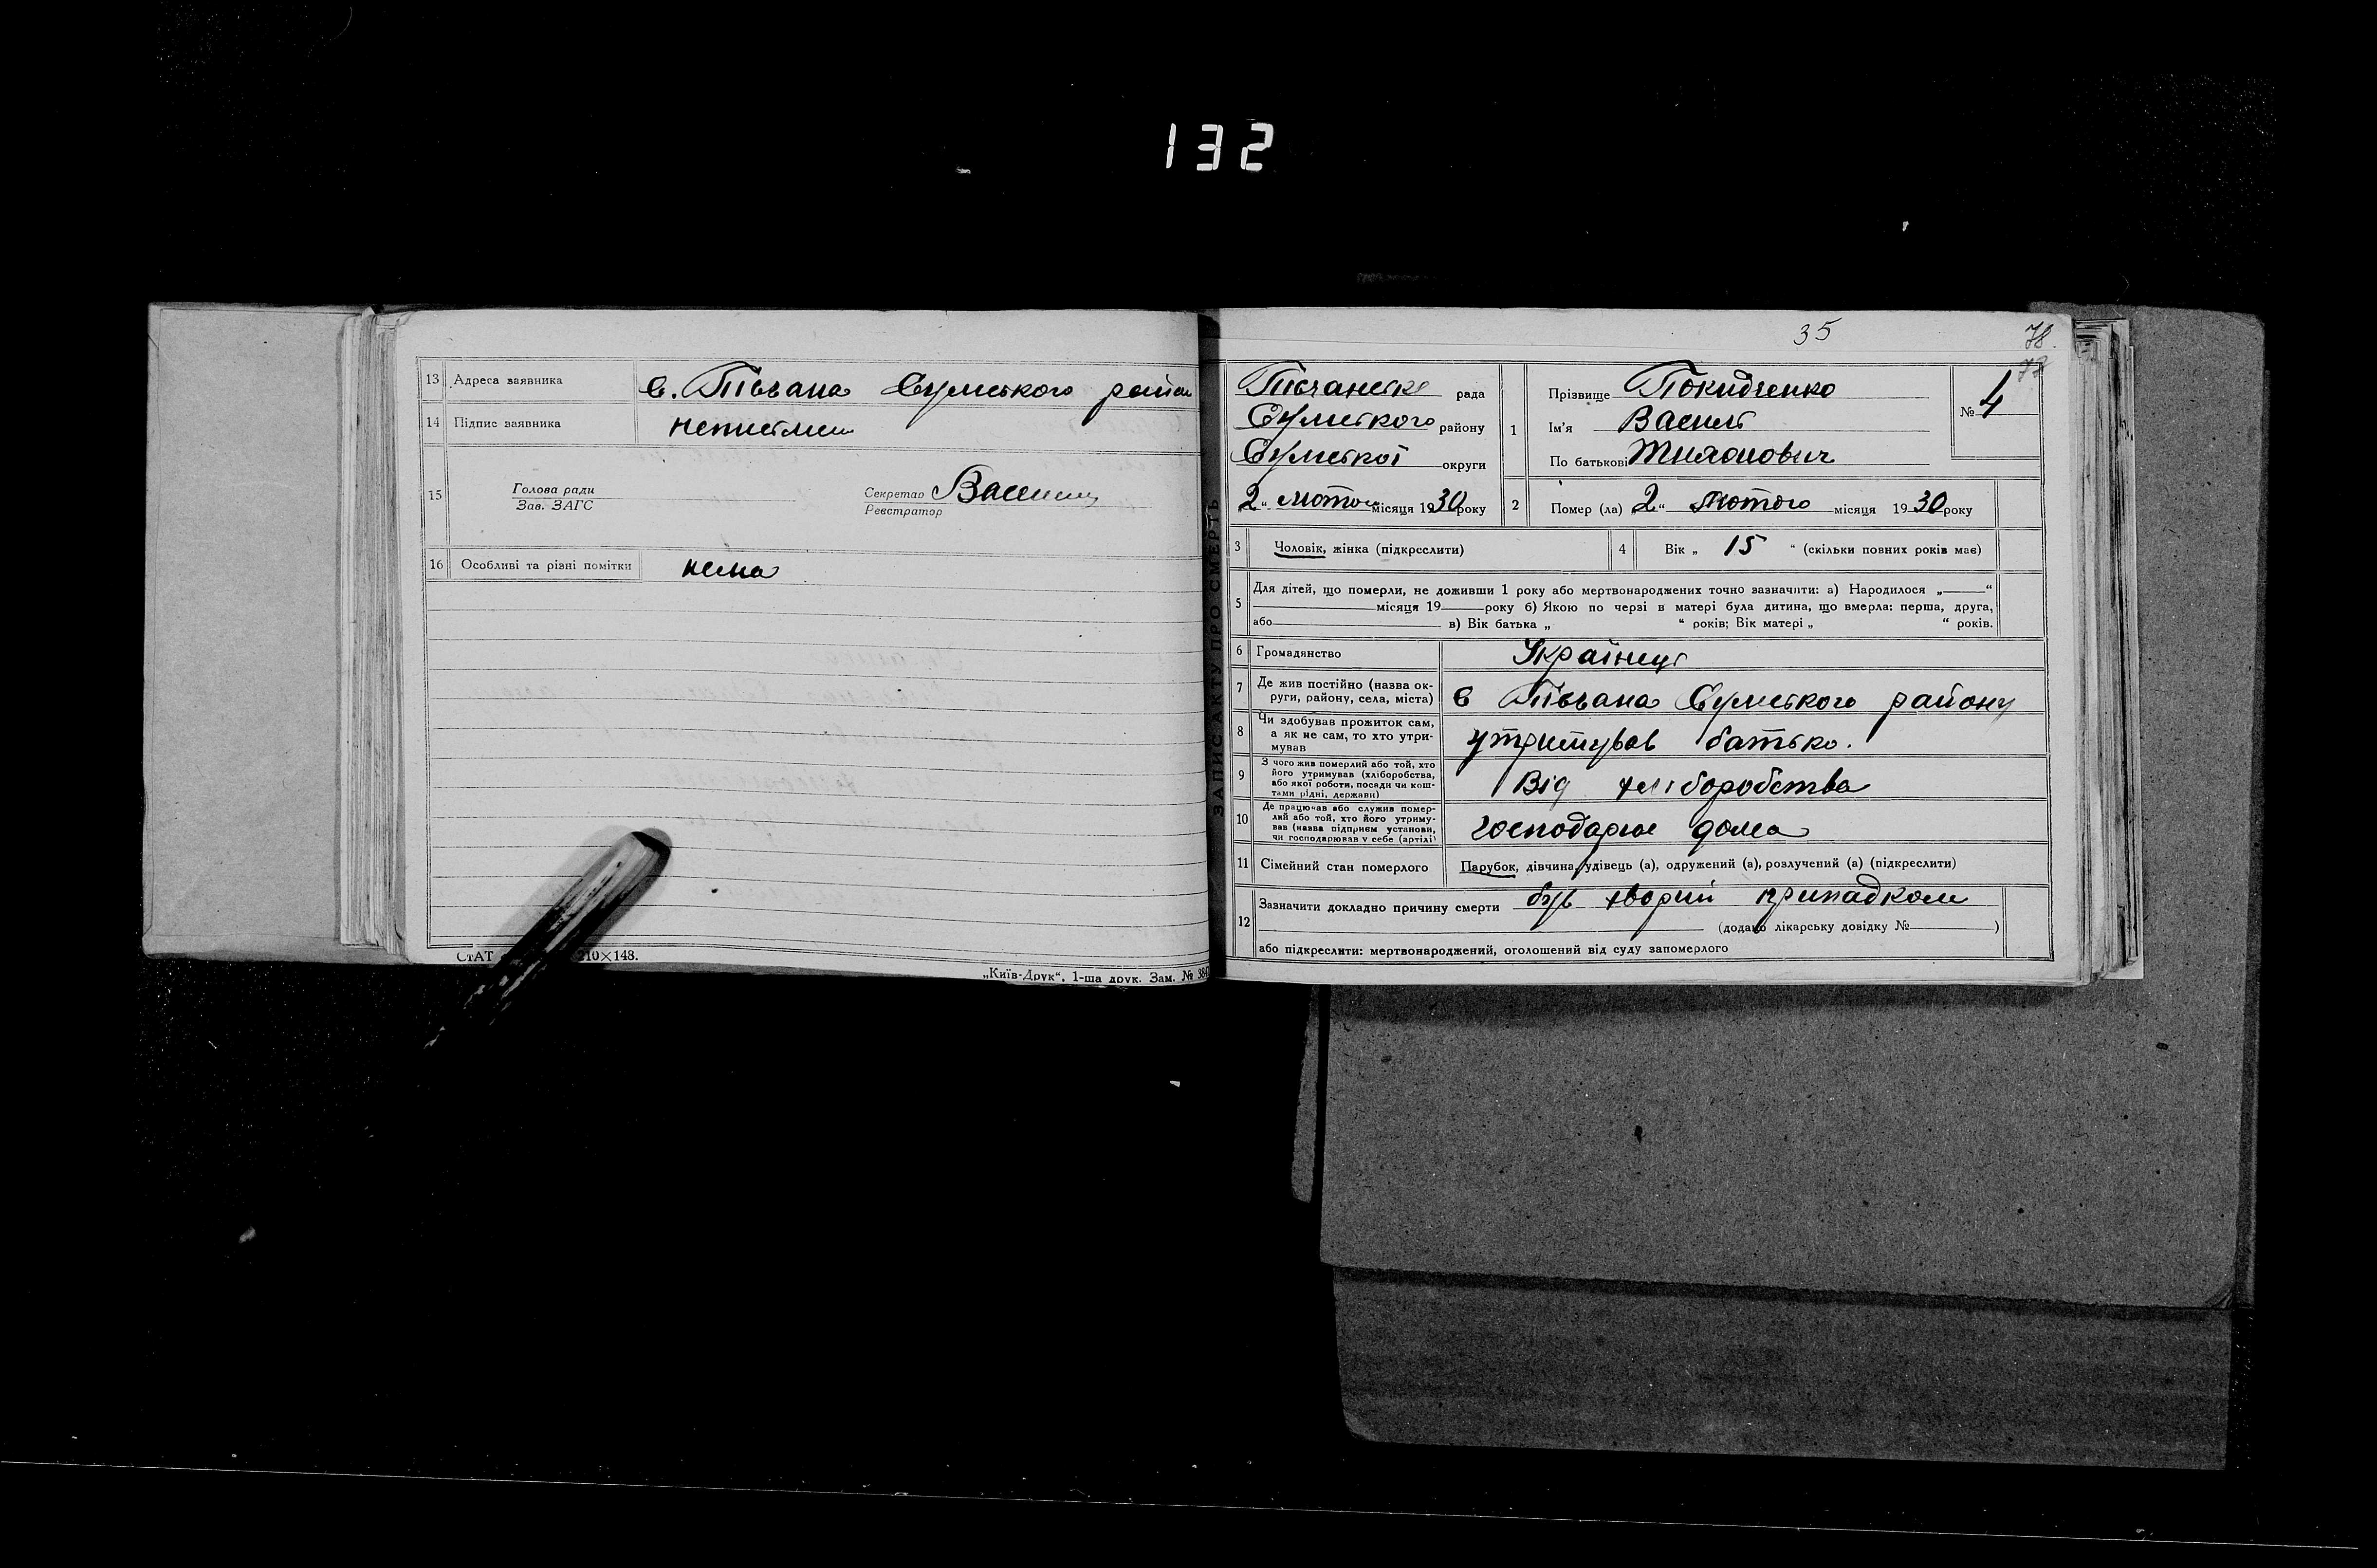 132
13 Адреса заявника с. Пісчана Сумського район
14 Підпис заявника неписьмен
15 Голова ради
Зав. ЗАГС
Секретар
Реєстратор
16 Особливі та різні помітки нема
СтАТ 210×148.
„Київ-Друк“, 1-ша друк. Зам. №
ЗАПИС АКТУ ПРО СМЕРТЬ
35
78.
Пісчанське рада
Сумського району
Сумської округи
„2“ лютого місяця 1930 року
1 Прізвище Покидченко
Ім'я Василь
По батькові
№ 4
2 Помер (ла) „2“ лютого місяця 1930 року
3 Чоловік, жінка (підкреслити)
4 Вік „ 15 “ (скільки повних років має)
5 Для дітей, що померли, не доживши 1 року або мертвонароджених точно зазначити: а) Народилося „ “
місяця 19 року б) Якою по черзі в матері була дитина, що вмерла: перша, друга,
або в) Вік батька „ “ років; Вік матері „ “ років.
6 Громадянство Українець
7 Де жив постійно (назва ок-
руги, району, села, міста) с Пісчана Сумського району
8 Чи здобував прожиток сам,
а як не сам, то хто утри-
мував утримував батько.
9 З чого жив померлий або той, хто
його утримував (хліборобства,
або якої роботи, посади чи кош-
тами рідні, держави) Від хліборобства
10 Де працював або служив помер-
лий або той, хто його утриму-
вав (назва підприєм установи,
чи господарював у себе (артілі) господарює дома
11 Сімейний стан померлого Парубок, дівчина, удівець (а), одружений (а), розлучений (а) (підкреслити)
12 Зазначити докладно причину смерти був хворий припадком
(додано лікарську довідку № )
або підкреслити: мертвонароджений, оголошений від суду запомерлого